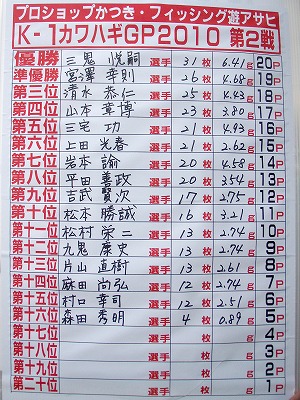 プロショップかつき・フィッシング遊アサヒ
K-1カワハギGP2010 第2戦
優勝 三鬼 悦嗣 選手 31枚 6.41g 20P
準優勝 宮澤 幸則 選手 26枚 4.68g 19P
第三位 清水 恭仁 選手 25枚 4.43g 18P
第四位 山本 章博 選手 23枚 3.80g 17P
第五位 三宅 功 選手 21枚 4.93g 16P
第六位 上田 光春 選手 21枚 2.62g 15P
第七位 岩本 諭 選手 20枚 4.58g 14P
第八位 平田 善政 選手 20枚 3.54g 13P
第九位 吉武 賢次 選手 17枚 2.75g 12P
第十位 松本 勝誠 選手 16枚 3.21g 11P
第十一位 松村 栄二 選手 13枚 2.74g 10P
第十二位 九鬼 康史 選手 13枚 2.74g 9P
第十三位 片山 直樹 選手 13枚 2.61g 8P
第十四位 麻田 尚弘 選手 12枚 2.74g 7P
第十五位 村口 幸司 選手 12枚 2.51g 6P
第十六位 森田 秀明 選手 4枚 0.89g 5P
第十七位 選手 枚 g 4P
第十八位 選手 枚 g 3P
第十九位 選手 枚 g 2P
第二十位 選手 枚 g 1P